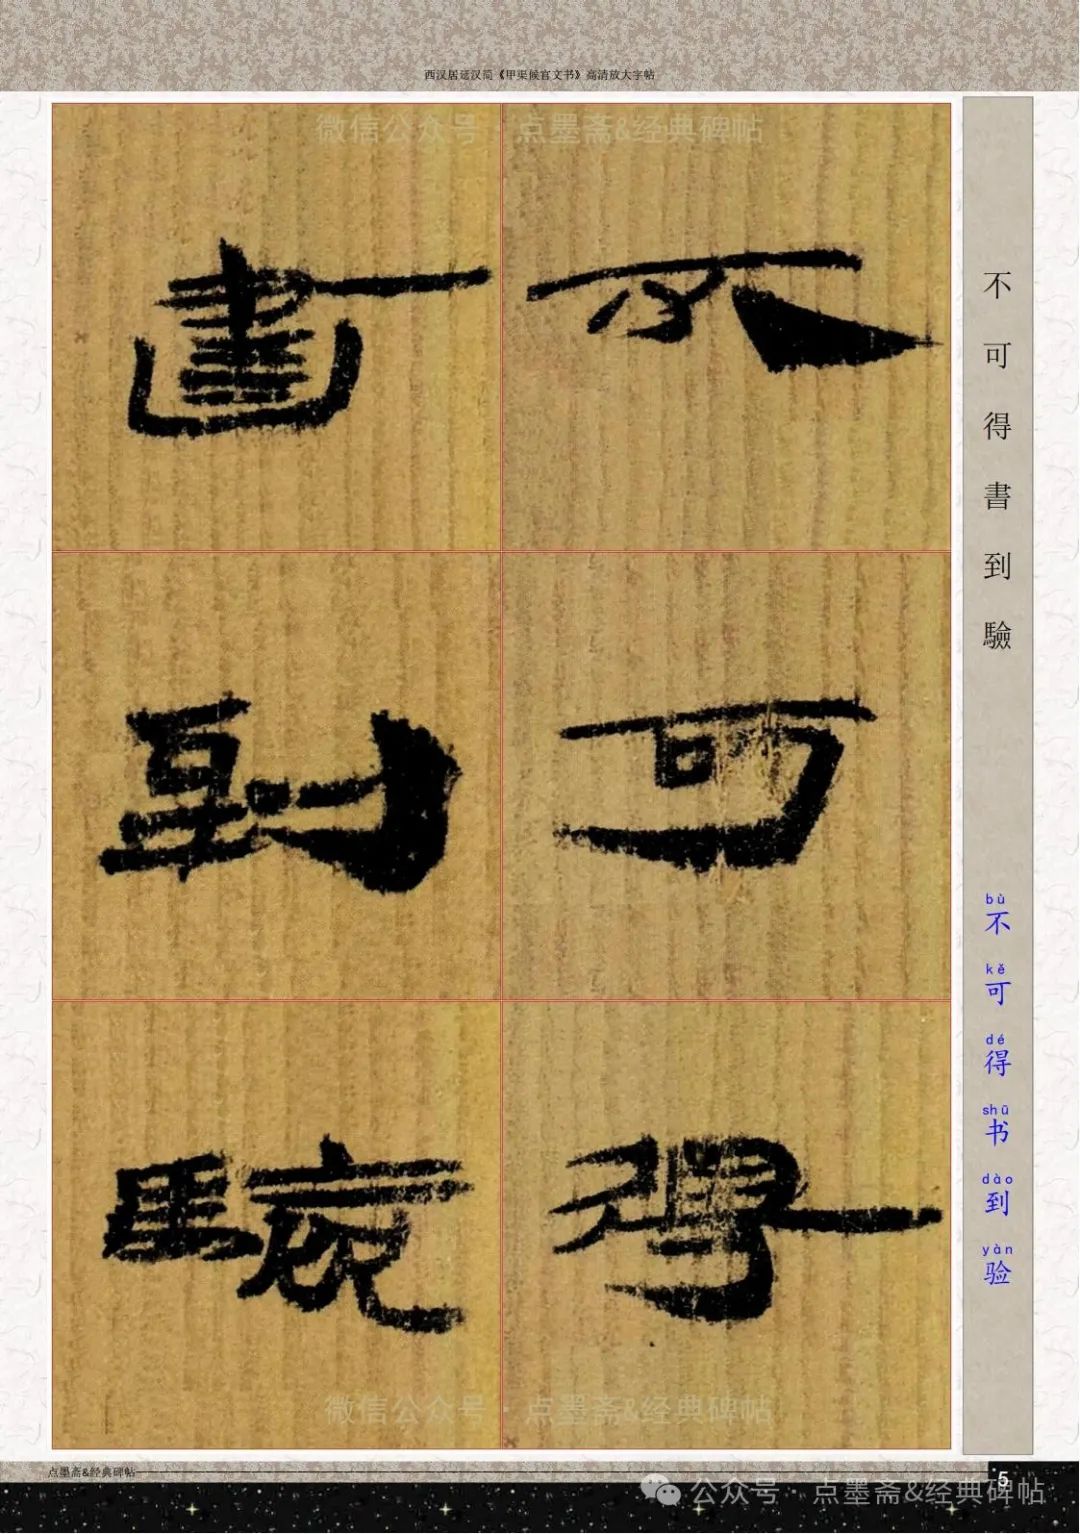 西汉居延汉简《甲渠候官文书》高清放大字帖
微信公众号·点墨斋&经典碑帖
不可得
書到驗
不可得書到驗
bù kě dé shū dào yàn
不可得书到验
微信公众号·点墨斋&经典碑帖
点墨斋&经典碑帖
5
公众号·点墨斋&经典碑帖